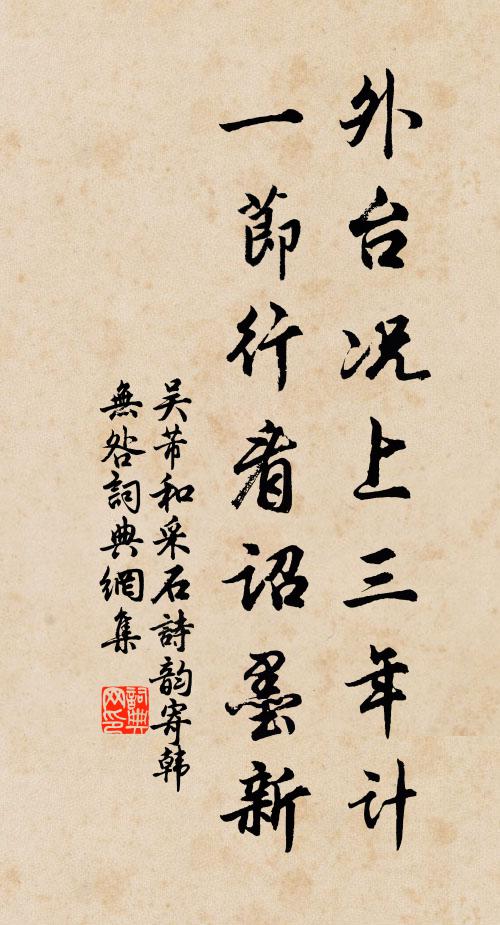 外台况上三年计
一節行看詔墨新
吴芾和采石詩韵寄韩
無咎詞典網集
詞典
网印